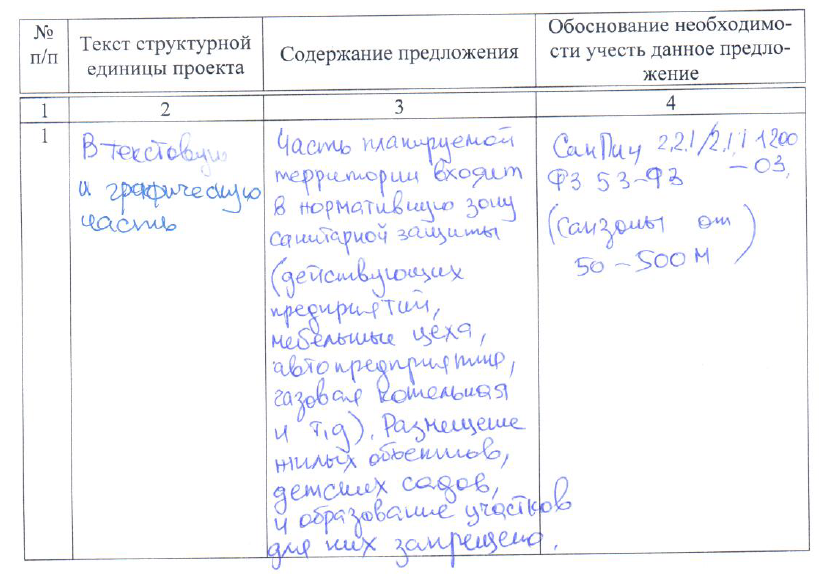 № п/п
Текст структурной единицы проекта
Содержание предложения
Обоснование необходимо-
сти учесть данное предло-
жение
1
2
3
4
1
В текстовую
и графическую
часть
Часть планируемой
территории входит
в нормативную зону
санитарной защиты
(действующих
предприятий,
мебельные цеха,
автопредприятие,
газовая котельная
и т.д). Размещение
жилых объектов,
детских садов,
и образование участков
для них запрещено.
СанПин 2.2.1/2.1.1 1200
– 03,
ФЗ 53-ФЗ
(санзоны от
50 – 500 м)